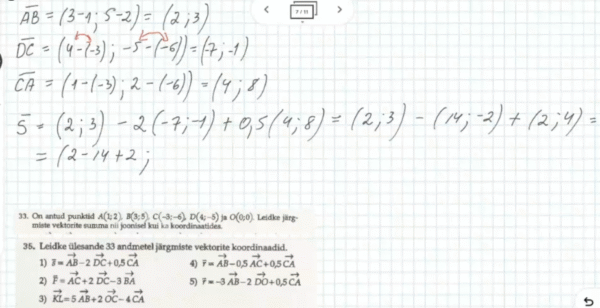 AB = (3-1; 5-2) = (2; 3)
7 / 11
DC = (4-(-3); -5-(-6)) = (-7; -1)
CA = (1-(-3); 2-(-6)) = (4; 8)
S = (2; 3) - 2(-7; -1) + 0,5(4; 8) = (2; 3) - (14; -2) + (2; 4) =
= (2-14+2;
33. On antud punktid A(1; 2), B(3; 5), C(-3; -6), D(4; -5) ja O(0; 0). Leidke järg-
miste vektorite summa nii joonisel kui ka koordinaatides.
35. Leidke ülesande 33 andmetel järgmiste vektorite koordinaadid.
1) s = AB - 2 DC + 0,5 CA
4) r = AB - 0,5 AC + 0,5 CA
2) F = AC + 2 DC - 3 BA
5) r = -3 AB - 2 DO + 0,5 CA
3) KL = 5 AB + 2 OC - 4 CA